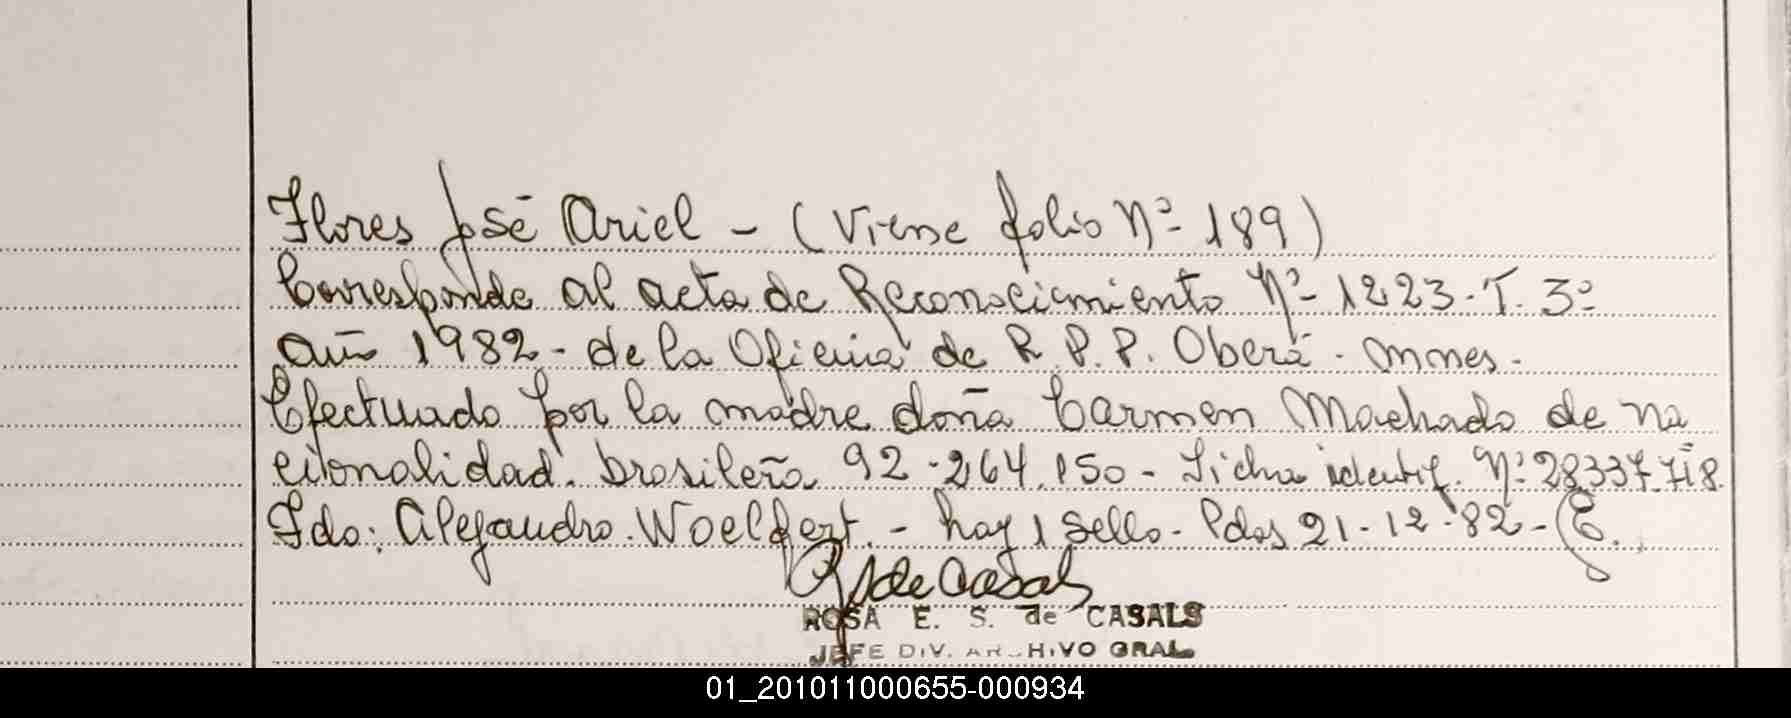 Flores José Ariel - (Viene folio Nº 189)
Corresponde al acta de Reconocimiento Nº - 1223 - T. 3º
año 1982 - de la Oficina de R. P. P. Oberá - Mnes -
Efectuado por la madre doña Carmen Machado de na
cionalidad brasileña 92.264.150 - Ficha identif. Nº 28337.718.
Fdo: Alejandro Woelfert. - hay 1 sello - Pdas 21-12-82 -
RS de Casals
ROSA E. S. de CASALS
JEFE DIV. ARCHIVO GRAL
01_201011000655-000934